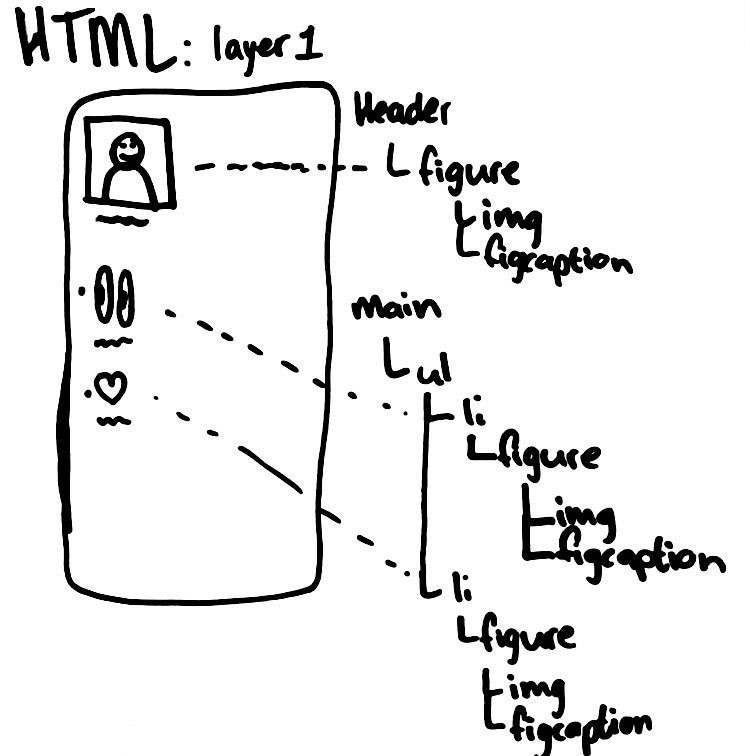 HTML: layer 1
Header
figure
img
figcaption
main
ul
li
figure
img
figcaption
li
figure
img
figcaption